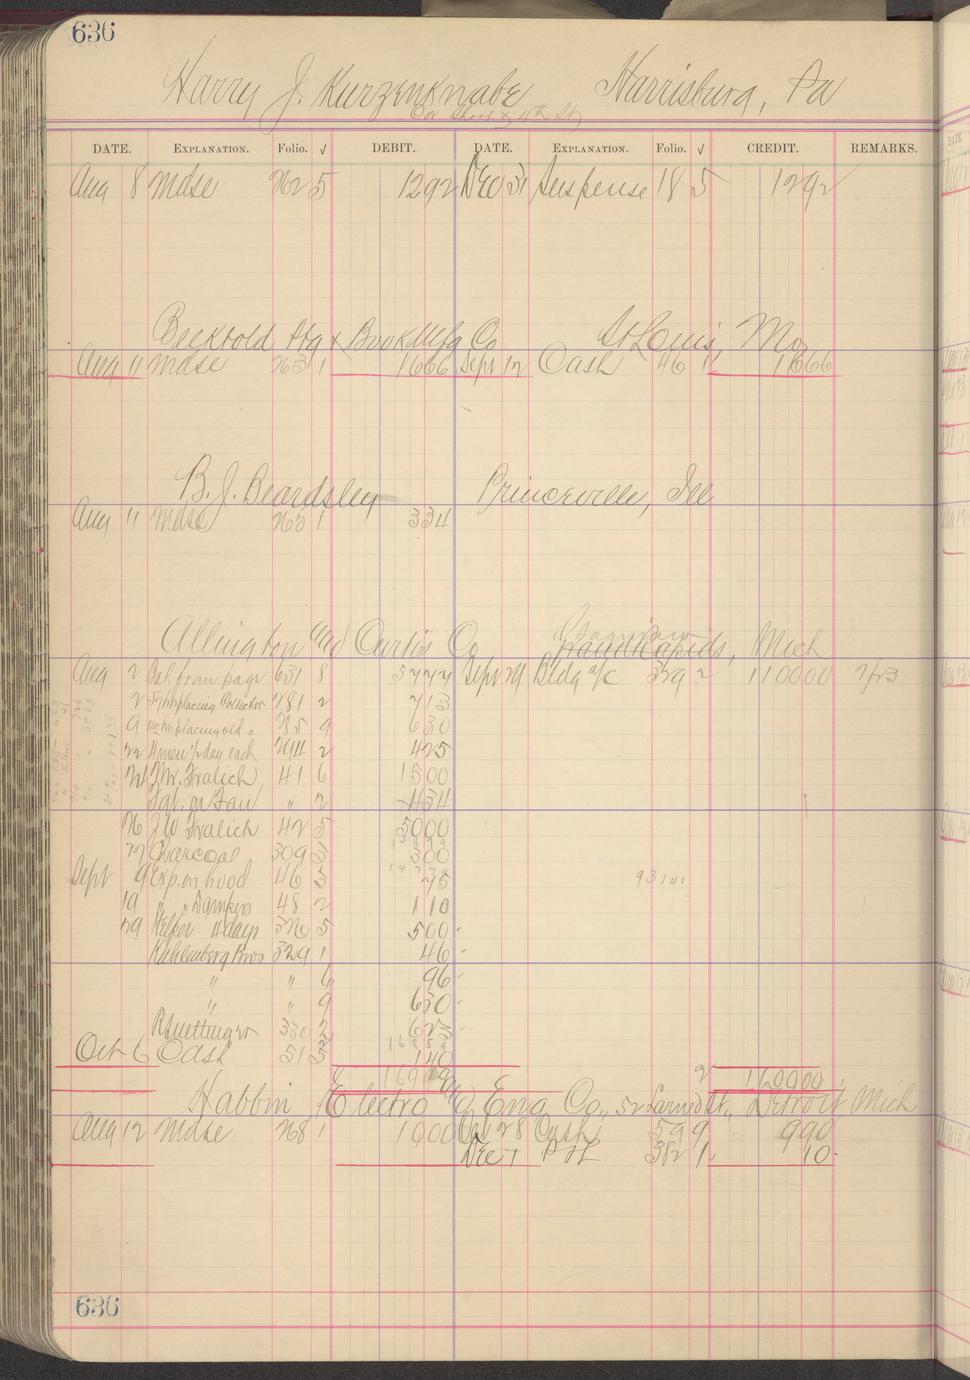 636
Harry J. Kurzenknabe Harrisburg, Pa
Cor 4th St
DATE. EXPLANATION. Folio. √ DEBIT. DATE. EXPLANATION. Folio. √ CREDIT. REMARKS.
Aug 8 Mdse 262 5 1292 Dec 31 Suspense 18 5 1292
Becktold Ptg & Book Mfg Co St Louis, Mo
Aug 11 Mdse 263 1 1666 Sept 12 Cash 46 1 1666
B. J. Beardsley Princeville, Ill
Aug 11 Mdse 265 1 334
Allington and Curtis Co Saginaw Grand Rapids, Mich
Aug 2 Bal. from page 631 8 Sept 29 Bldg a/c 329 2 110000
2 placing Collector 281 2 713
9 placing old " 285 9 630
22 4 men 1/2 day each 294 2 425
24 J.W. Fralich 41 6 1500
Fgt. on Fan " 2 434
26 J W Fralich 42 5 5000
27 Charcoal 309 300
Sept 9 Exp. on hood 46 5 75
19 " " Dampers 48 2 110
29 Helper 4 days 326 5 500
Kuhlenberg Bros 329 1 46
" " 6 96
" " 9 630
330 2 625
Oct 6 Cash 51 140
Habbin Electro Eng Co., 52 Larned St., Detroit Mich
Aug 12 Mdse 268 1 1000 Oct 28 Cash 59 9 990
Dec 1 P & L 382 1 10
636